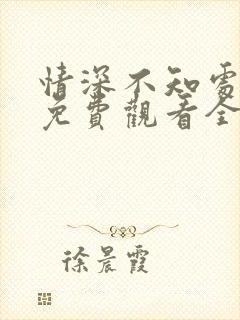 情深不知處
免費觀看全
徐晨霞